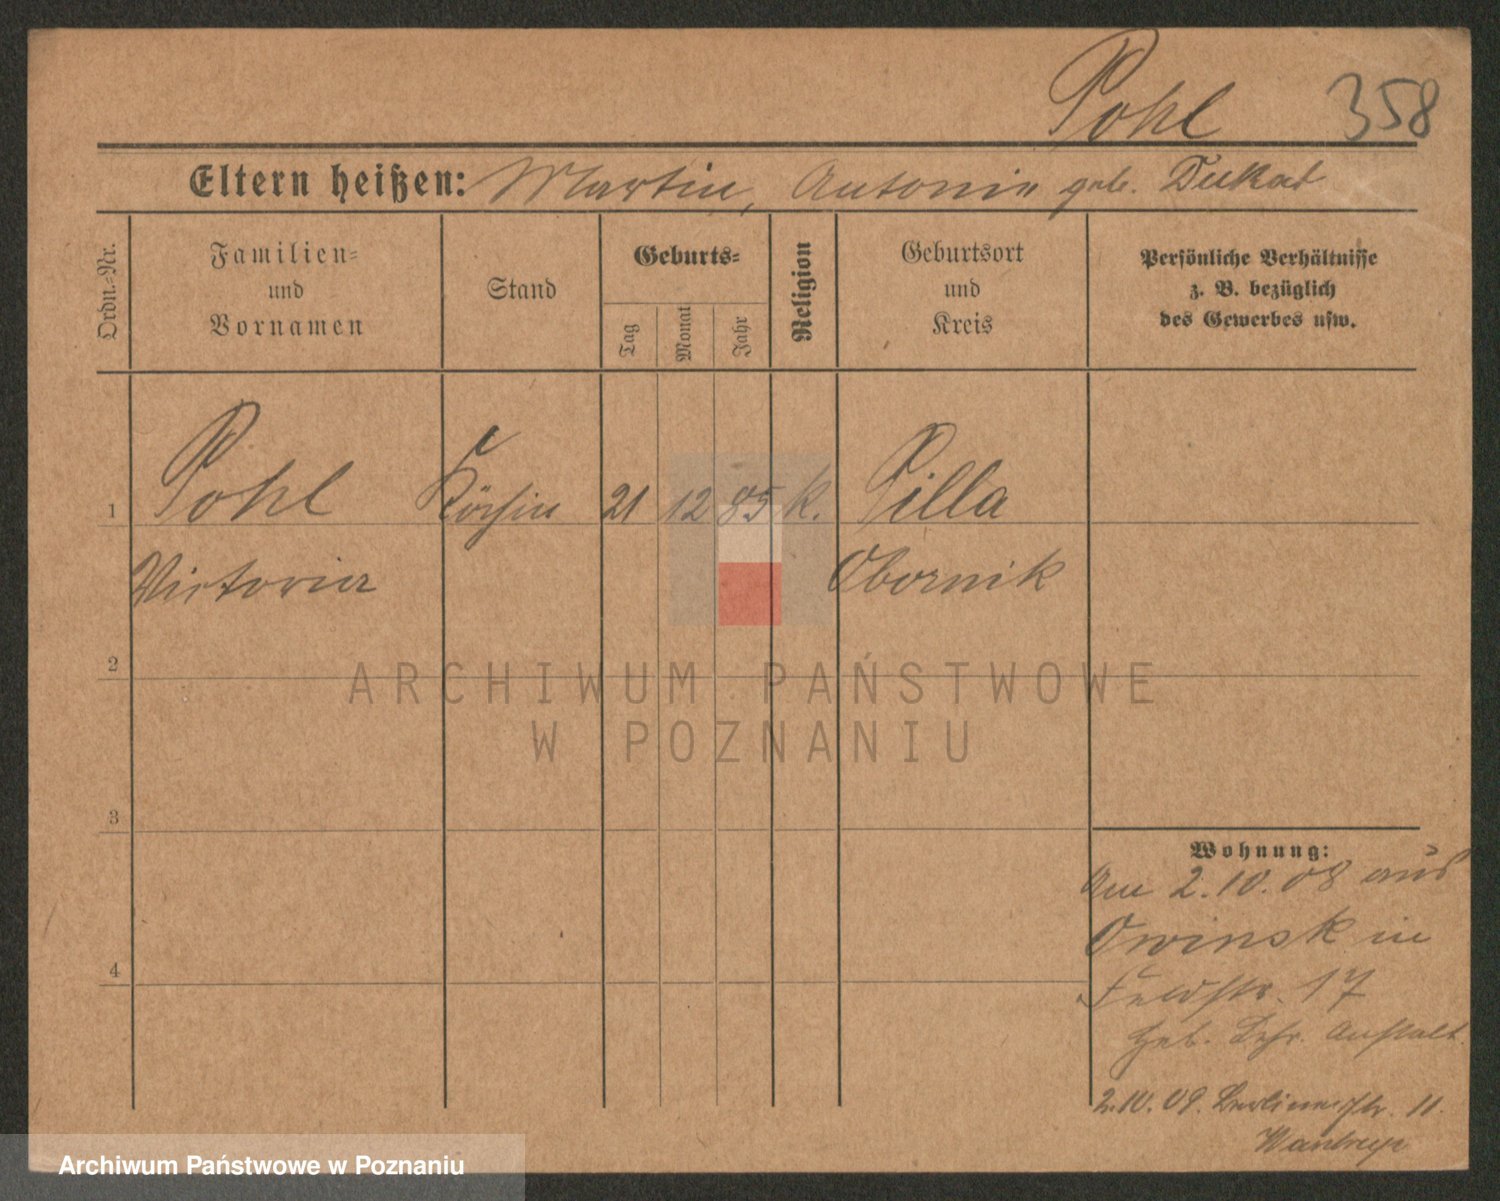 Pohl 358
Eltern heißen: Martin, Antonie geb. Dukat
Ordn.-Nr.
Familien-
und
Vornamen
Stand
Geburts-
Tag
Monat
Jahr
Religion
Geburtsort
und
Kreis
Persönliche Verhältnisse
z. B. bezüglich
des Gewerbes usw.
1 Pohl Köchin 21 12 85 k. Pilla
Victoria Obornik
2
ARCHIWUM PAŃSTWOWE
W POZNANIU
3
Wohnung:
Am 2.10.08 aus
Owinsk in
4
Feldstr. 17
Heb. Lehr. Anstalt.
2.10.09. Berlinerstr. 11.
Archiwum Państwowe w Poznaniu